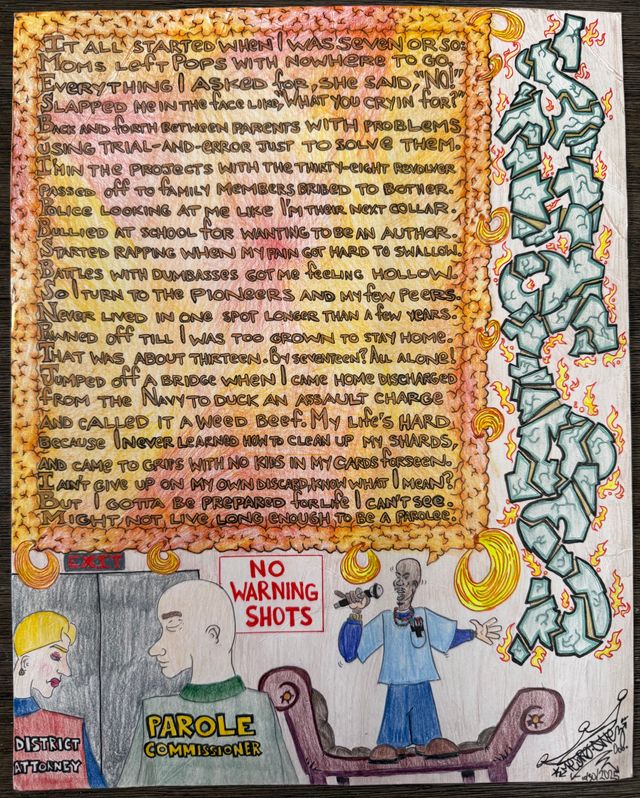 It all started when I was seven or so:
Moms left Pops with nowhere to go,
Everything I asked for, she said, "No!"
Slapped me in the face like, "What you cryin for?"
Back and forth between parents with problems
using trial-and-error just to solve them.
I'm in the projects with the thirty-eight revolver
passed off to family members bribed to bother.
Police looking at me like I'm their next collar.
Bullied at school for wanting to be an author.
Started rapping when my pain got hard to swallow.
Battles with dumbasses got me feeling hollow.
So I turn to the pioneers and my few peers.
Never lived in one spot longer than a few years.
Pawned off till I was too grown to stay home.
That was about thirteen. By seventeen? All alone!
Jumped off a bridge when I came home discharged
from the Navy to duck an assault charge
and called it a weed beef. My life's hard
because I never learned how to clean up my shards,
and came to grips with no kids in my cards forseen.
I ain't give up on my own discard, know what I mean?
But I gotta be prepared for life I can't see.
Might not live long enough to be a parolee.
EXIT
NO
WARNING
SHOTS
DISTRICT
ATTORNEY
PAROLE
COMMISSIONER